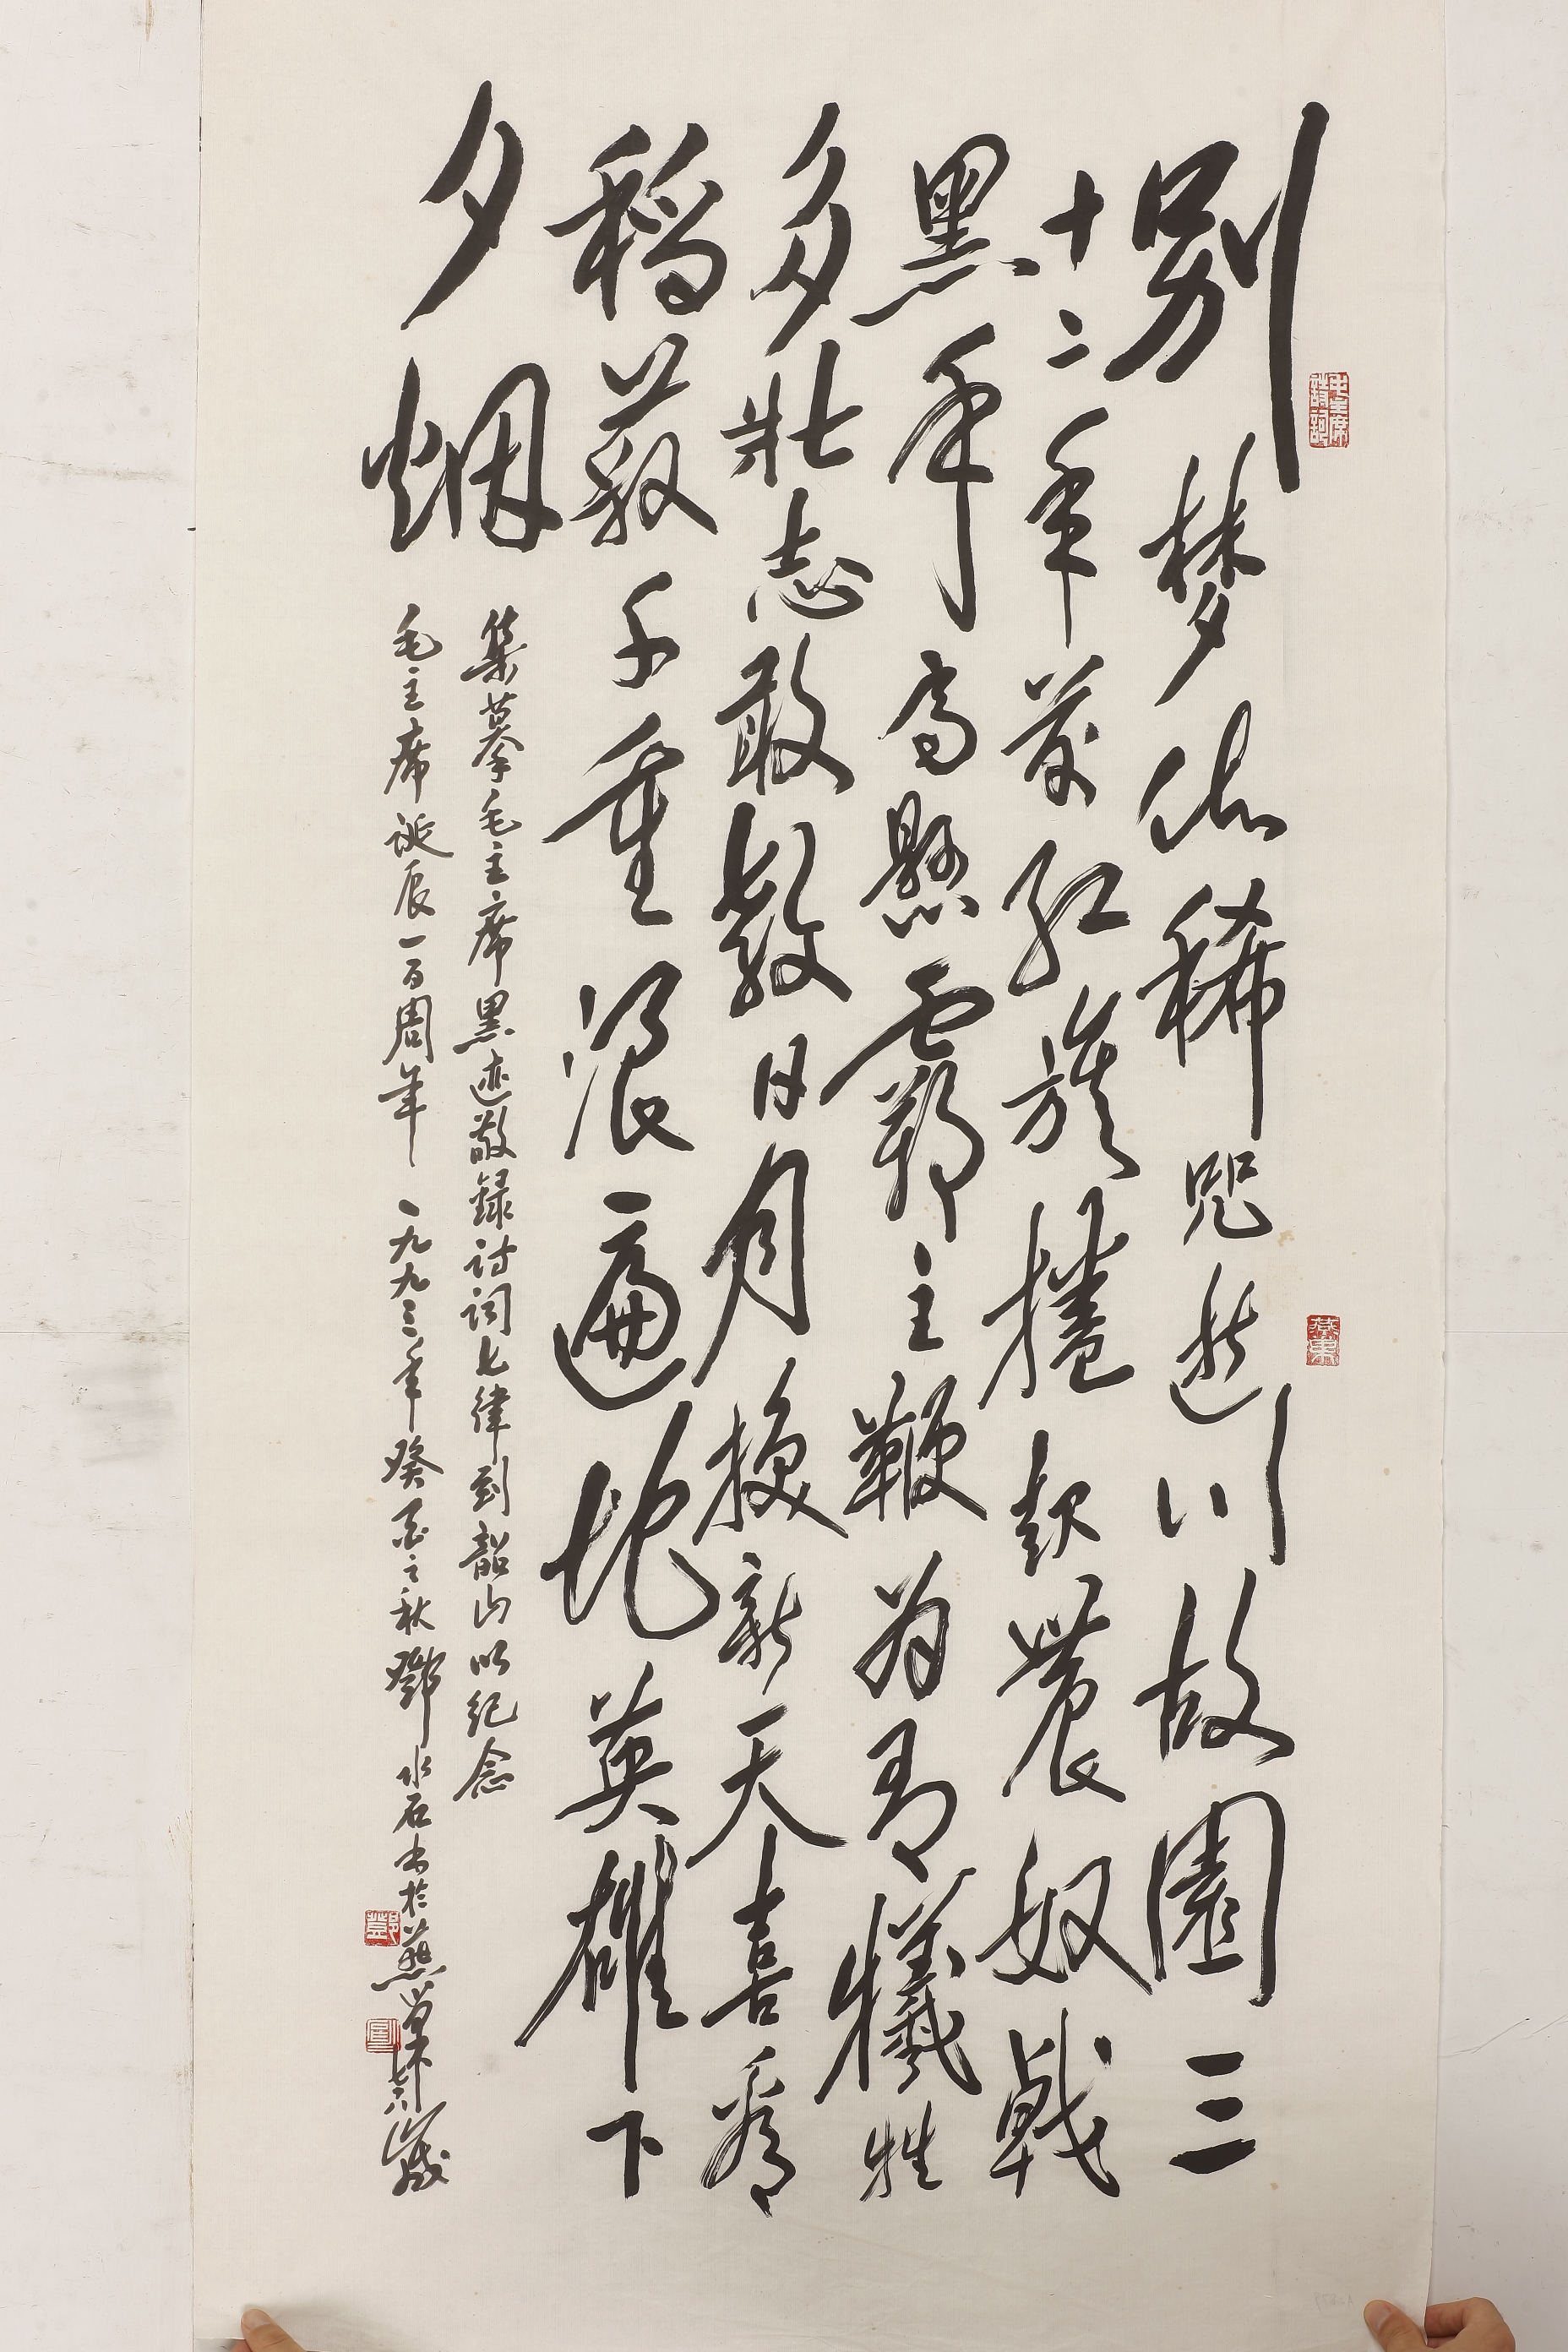 毛主席詩詞
别梦依稀咒逝川故園三
十二年前红旗捲起農奴戟
黑手高懸霸主鞭为有犠牲
多壮志敢教日月换新天喜看
稻菽千重浪遍地英雄下
夕烟
集摹毛主席墨迹敬録诗词七律到韶山以纪念
毛主席诞辰一百周年 一九九三年癸酉之秋鄧水石书於燕巢歲